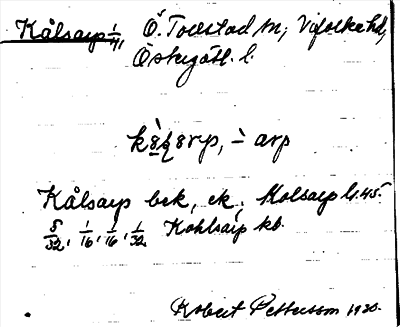 Kålsarp 1/4, Ö. Tollstad sn, Vifolka hd,
Östergötl. l.
- arp
Kålsarp bek, ek, Kolsarp lt. 45.
5/32, 1/16, 1/16, 1/32 Kohlsarp kb.
Robert Pettersson 1930.